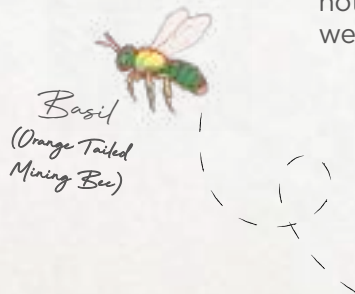 not
we
Basil
(Orange Tailed
Mining Bee)